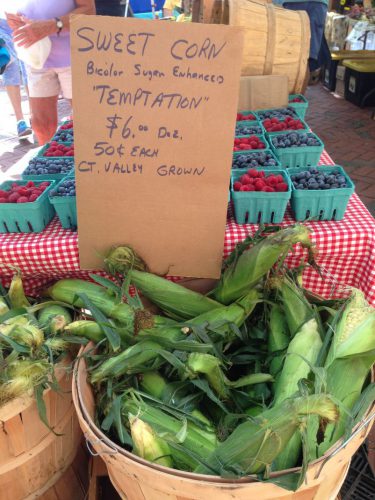 SWEET CORN
Bicolor Sugar Enhanced
"TEMPTATION"
$6.00 Doz.
50¢ EACH
CT. VALLEY GROWN